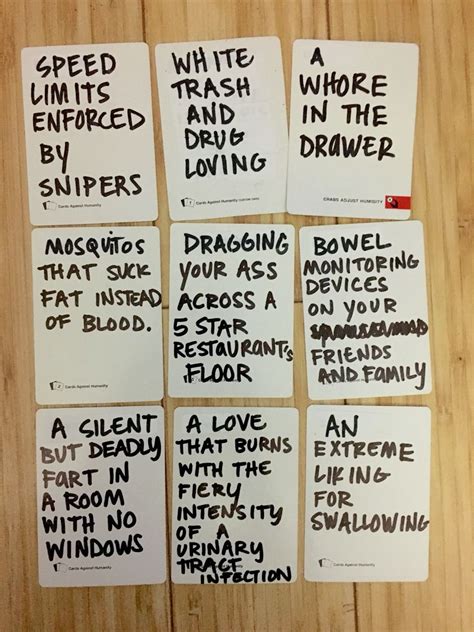 SPEED
LIMITS
ENFORCED
BY
SNIPERS
Cards Against Humanity
WHITE
TRASH
AND
DRUG
LOVING
Cards Against Humanity
A
WHORE
IN THE
DRAWER
CRABS ADJUST HUMIDITY
MOSQUITOS
THAT SUCK
FAT INSTEAD
OF BLOOD.
Cards Against Humanity
DRAGGING
YOUR ASS
ACROSS A
5 STAR
RESTAURANT'S
FLOOR
BOWEL
MONITORING
DEVICES
ON YOUR
FRIENDS
AND FAMILY
A SILENT
BUT DEADLY
FART IN
A ROOM
WITH NO
WINDOWS
Cards Against Humanity
A LOVE
THAT BURNS
WITH THE
FIERY
INTENSITY
OF A
URINARY
TRACT
INFECTION
AN
EXTREME
LIKING
FOR
SWALLOWING
Cards Against Humanity